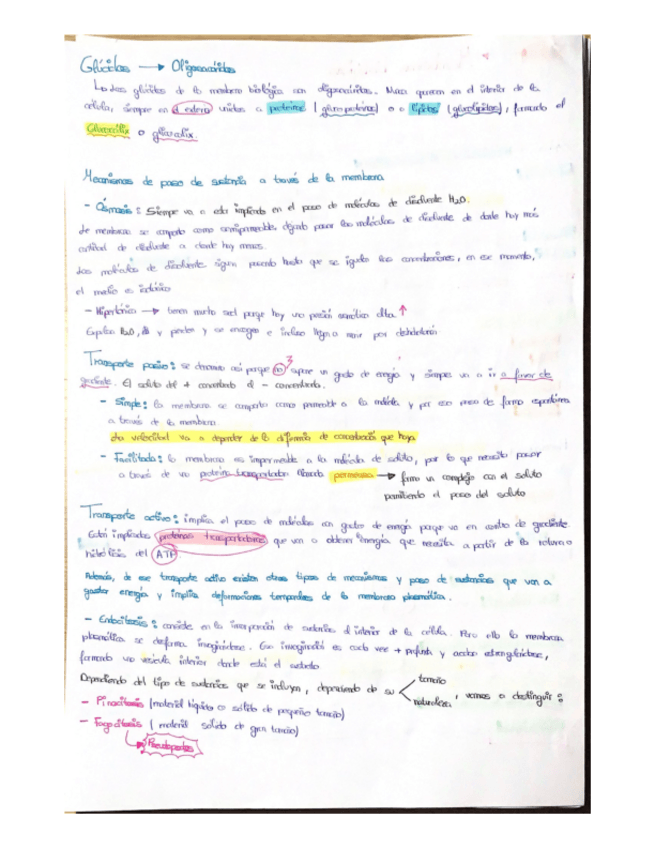 Glúcidos → Oligosacáridos
Los glúcidos de la membrana biológica son oligosacáridos. Nunca aparecen en el interior de la
célula, siempre en el externo unidos a proteínas (glucoproteínas) o a lípidos (glucolípidos), formando el
Glucocálix o glicocálix.
Mecanismos de paso de sustancia a través de la membrana
- Ósmosis: Siempre va a estar implicado en el paso de moléculas de disolvente H2O.
La membrana se comporta como semipermeable, dejando pasar las moléculas de disolvente de donde hay más
cantidad de disolvente a donde hay menos.
Las moléculas de disolvente siguen pasando hasta que se igualan las concentraciones, en ese momento,
el medio es isotónico
- Hipertónico → tienen mucha sed porque hay una presión osmótica alta ↑
Expulsa H2O, y pierden y se encogen e incluso llegan a morir por deshidratación
Transporte pasivo: se denomina así porque no supone un gasto de energía y siempre va a ir a favor de
gradiente. El soluto del + concentrado al - concentrado.
- Simple: la membrana se comporta como permeable a la molécula y por eso pasa de forma espontánea
a través de la membrana.
La velocidad va a depender de la diferencia de concentración que haya
- Facilitada: la membrana es impermeable a la molécula de soluto, por lo que necesita pasar
a través de una proteína transportadora llamada permeasa → forma un complejo con el soluto
permitiendo el paso del soluto
Transporte activo: implica el paso de moléculas con gasto de energía porque va en contra de gradiente.
Están implicadas proteínas transportadoras que van a obtener energía que necesita a partir de la rotura o
hidrólisis del ATP
Además, de ese transporte activo existen otros tipos de mecanismos y paso de sustancias que van a
gastar energía y implica deformaciones temporales de la membrana plasmática.
- Endocitosis: consiste en la incorporación de sustancias al interior de la célula. Para ello la membrana
plasmática se deforma invaginándose. Esa invaginación es cada vez + profunda y acaba estrangulándose,
formando una vesícula interior donde está el sustrato
Dependiendo del tipo de sustancias que se incluyan, dependiendo de su tamaño
naturaleza, vamos a distinguir:
- Pinocitosis (material líquido o sólido de pequeño tamaño)
- Fagocitosis (material sólido de gran tamaño)
Pseudópodos